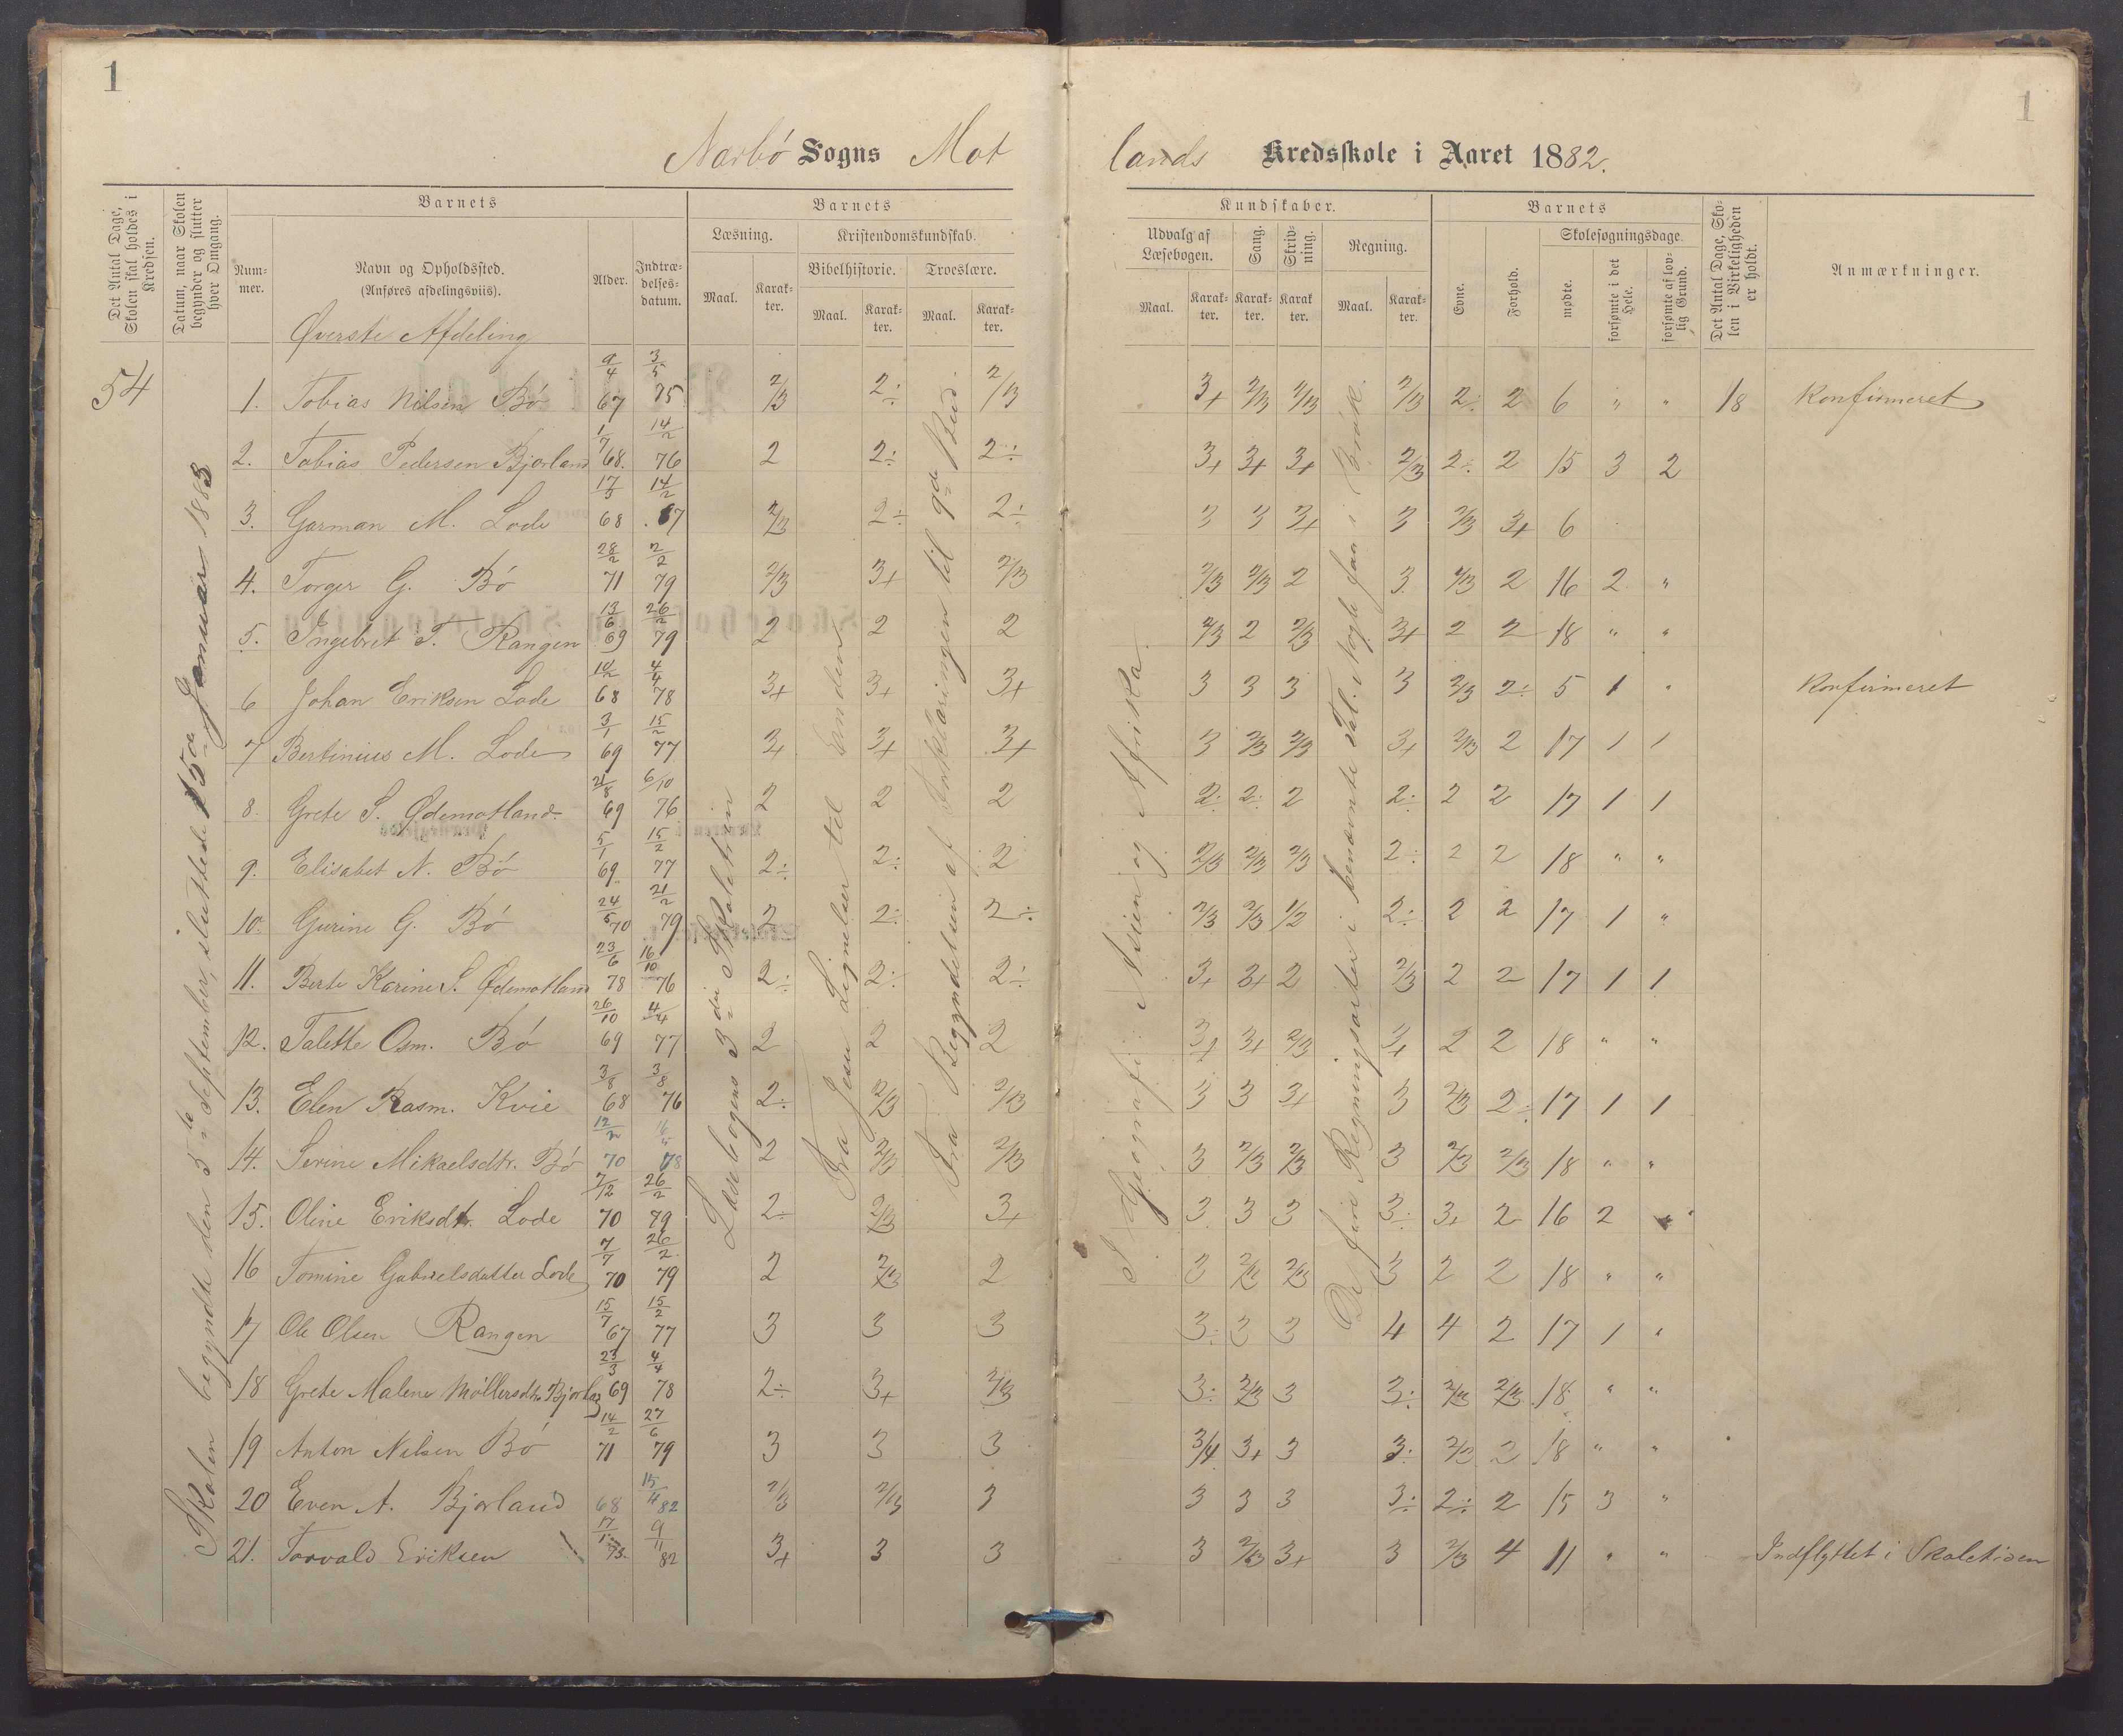 1
1
Nærbø Sogns Mot
lands Kredsskole i Aaret 1882.
Det Antal Dage, Skolen skal holdes i Kredsen.
Datum, naar Skolen begynder og slutter hver Omgang.
Barnets
Barnets
Kundskaber.
Barnets
Det Antal Dage, Skolen i Virkeligheden er holdt.
Anmærkninger.
Nummer.
Navn og Opholdssted.
(Anføres afdelingsviis).
Alder.
Indtrædelsesdatum.
Læsning.
Kristendomskundskab.
Udvalg af Læsebogen.
Sang.
Skrivning.
Regning.
Evne.
Forhold.
Skolesøgningsdage.
Maal.
Karakter.
Bibelhistorie.
Troeslære.
Maal.
Karakter.
Maal.
Karakter.
Maal.
Karakter.
Karakter.
Karakter.
Maal.
Karakter.
mødte.
forsømte i det Hele.
forsømte af lovlig Grund.
Øverste Afdeling
54
Skolen begyndte den 5te September, sluttede 15de Januar 1883
Læsebogens 3die Skoletrin
Fra Jesu Lignelser til Enden
Fra Begyndelsen af Forklaringen til 9de Bud.
I Geografi: Asien og Afrika.
De fire Regningsarter i benævnte Tal. Nogle faa i Brøk.
1. Tobias Nilsen Bø 9/4 67 3/5 75 2/3 2÷ 2/3 3+ 2/3 2/3 2/3 2÷ 2 6 " " 18 Konfirmeret
2. Tobias Pedersen Bjorland 1/7 68. 14/2 76 2 2÷ 2÷ 3+ 3+ 3+ 2/3 2÷ 2 15 3 2
3. Garman M. Lode 17/3 68 14/2 67 2/3 2÷ 2÷ 3 3 3+ 3 2/3 3+ 6
4. Torger G. Bø 28/2 71 2/2 79 2/3 3+ 2/3 2/3 2/3 2 3 2/3 2 16 2 "
5. Ingebret T. Rangen 13/6 69 26/2 79 2 2 2 2/3 2 2/3 3+ 2 2 18 " "
6 Johan Eriksen Lode 14/2 68 4/4 78 3+ 3+ 3+ 3 3 3 3 2/3 2÷ 5 1 " Konfirmeret
7 Bertinius M. Lode 3/1 69 15/2 77 3+ 3+ 3+ 3 2/3 2/3 3+ 2/3 2 17 1 1
8. Grete S. Ødemotland. 21/8 69 6/10 76 2 2 2 2÷ 2÷ 2 2÷ 2 2 17 1 1
9. Elisabet N. Bø 5/1 69 15/2 77 2÷ 2÷ 2 2/3 2/3 2/3 2÷ 2 2 18 " "
10. Gurine G. Bø 24/5 70 21/2 79 2 2÷ 2÷ 2/3 2/3 1/2 2÷ 2 2 17 1 "
11. Berte Karine S. Ødemotland 23/6 78 16/10 76 2÷ 2÷ 2÷ 3+ 3+ 2 2/3 2 2 17 1 1
12. Talette Osm. Bø 26/10 69 4/4 77 2 2 2 3+ 3+ 2/3 3+ 2 2 18 " "
13. Elen Rasm. Kvie 3/8 68 3/8 76 2÷ 2/3 2/3 3 3 3+ 3 2/3 2÷ 17 1 1
14. Serine Mikaelsdtr. Bø 12/2 70 78 2 2/3 2/3 3 2/3 2/3 3 2/3 2/3 18 " "
15. Oline Eriksdtr. Lode 7/12 70 26/2 79 2÷ 2/3 3+ 3 3 3 3÷ 3+ 2 16 2
16 Tomine Gabrielsdatter Lode 7/7 70 26/2 79 2 2/3 2 3 2/3 2/3 3 2 2 18 " "
17 Ole Olsen Rangen 15/7 67 15/2 77 3 3 3 3÷ 3 3 4 4 2 17 1 "
18 Grete Malene Møllersdtr. Bjorland 23/3 69 4/4 78 2÷ 3+ 2/3 3÷ 2/3 3 3÷ 2/3 2/3 18 " "
19 Anton Nilsen Bø 14/2 71 27/6 79 3 3 3 3/4 3+ 3 3÷ 2/3 2 18 " "
20 Even A. Bjorland 68 15/4 82 2/3 2/3 3 3 3 3 3÷ 2÷ 2 15 3 "
21. Torvald Eriksen 17/1 73 9/11 82 3+ 3 3 3 2/3 3+ 3 2/3 4 11 " " Indflyttet i Skoletiden